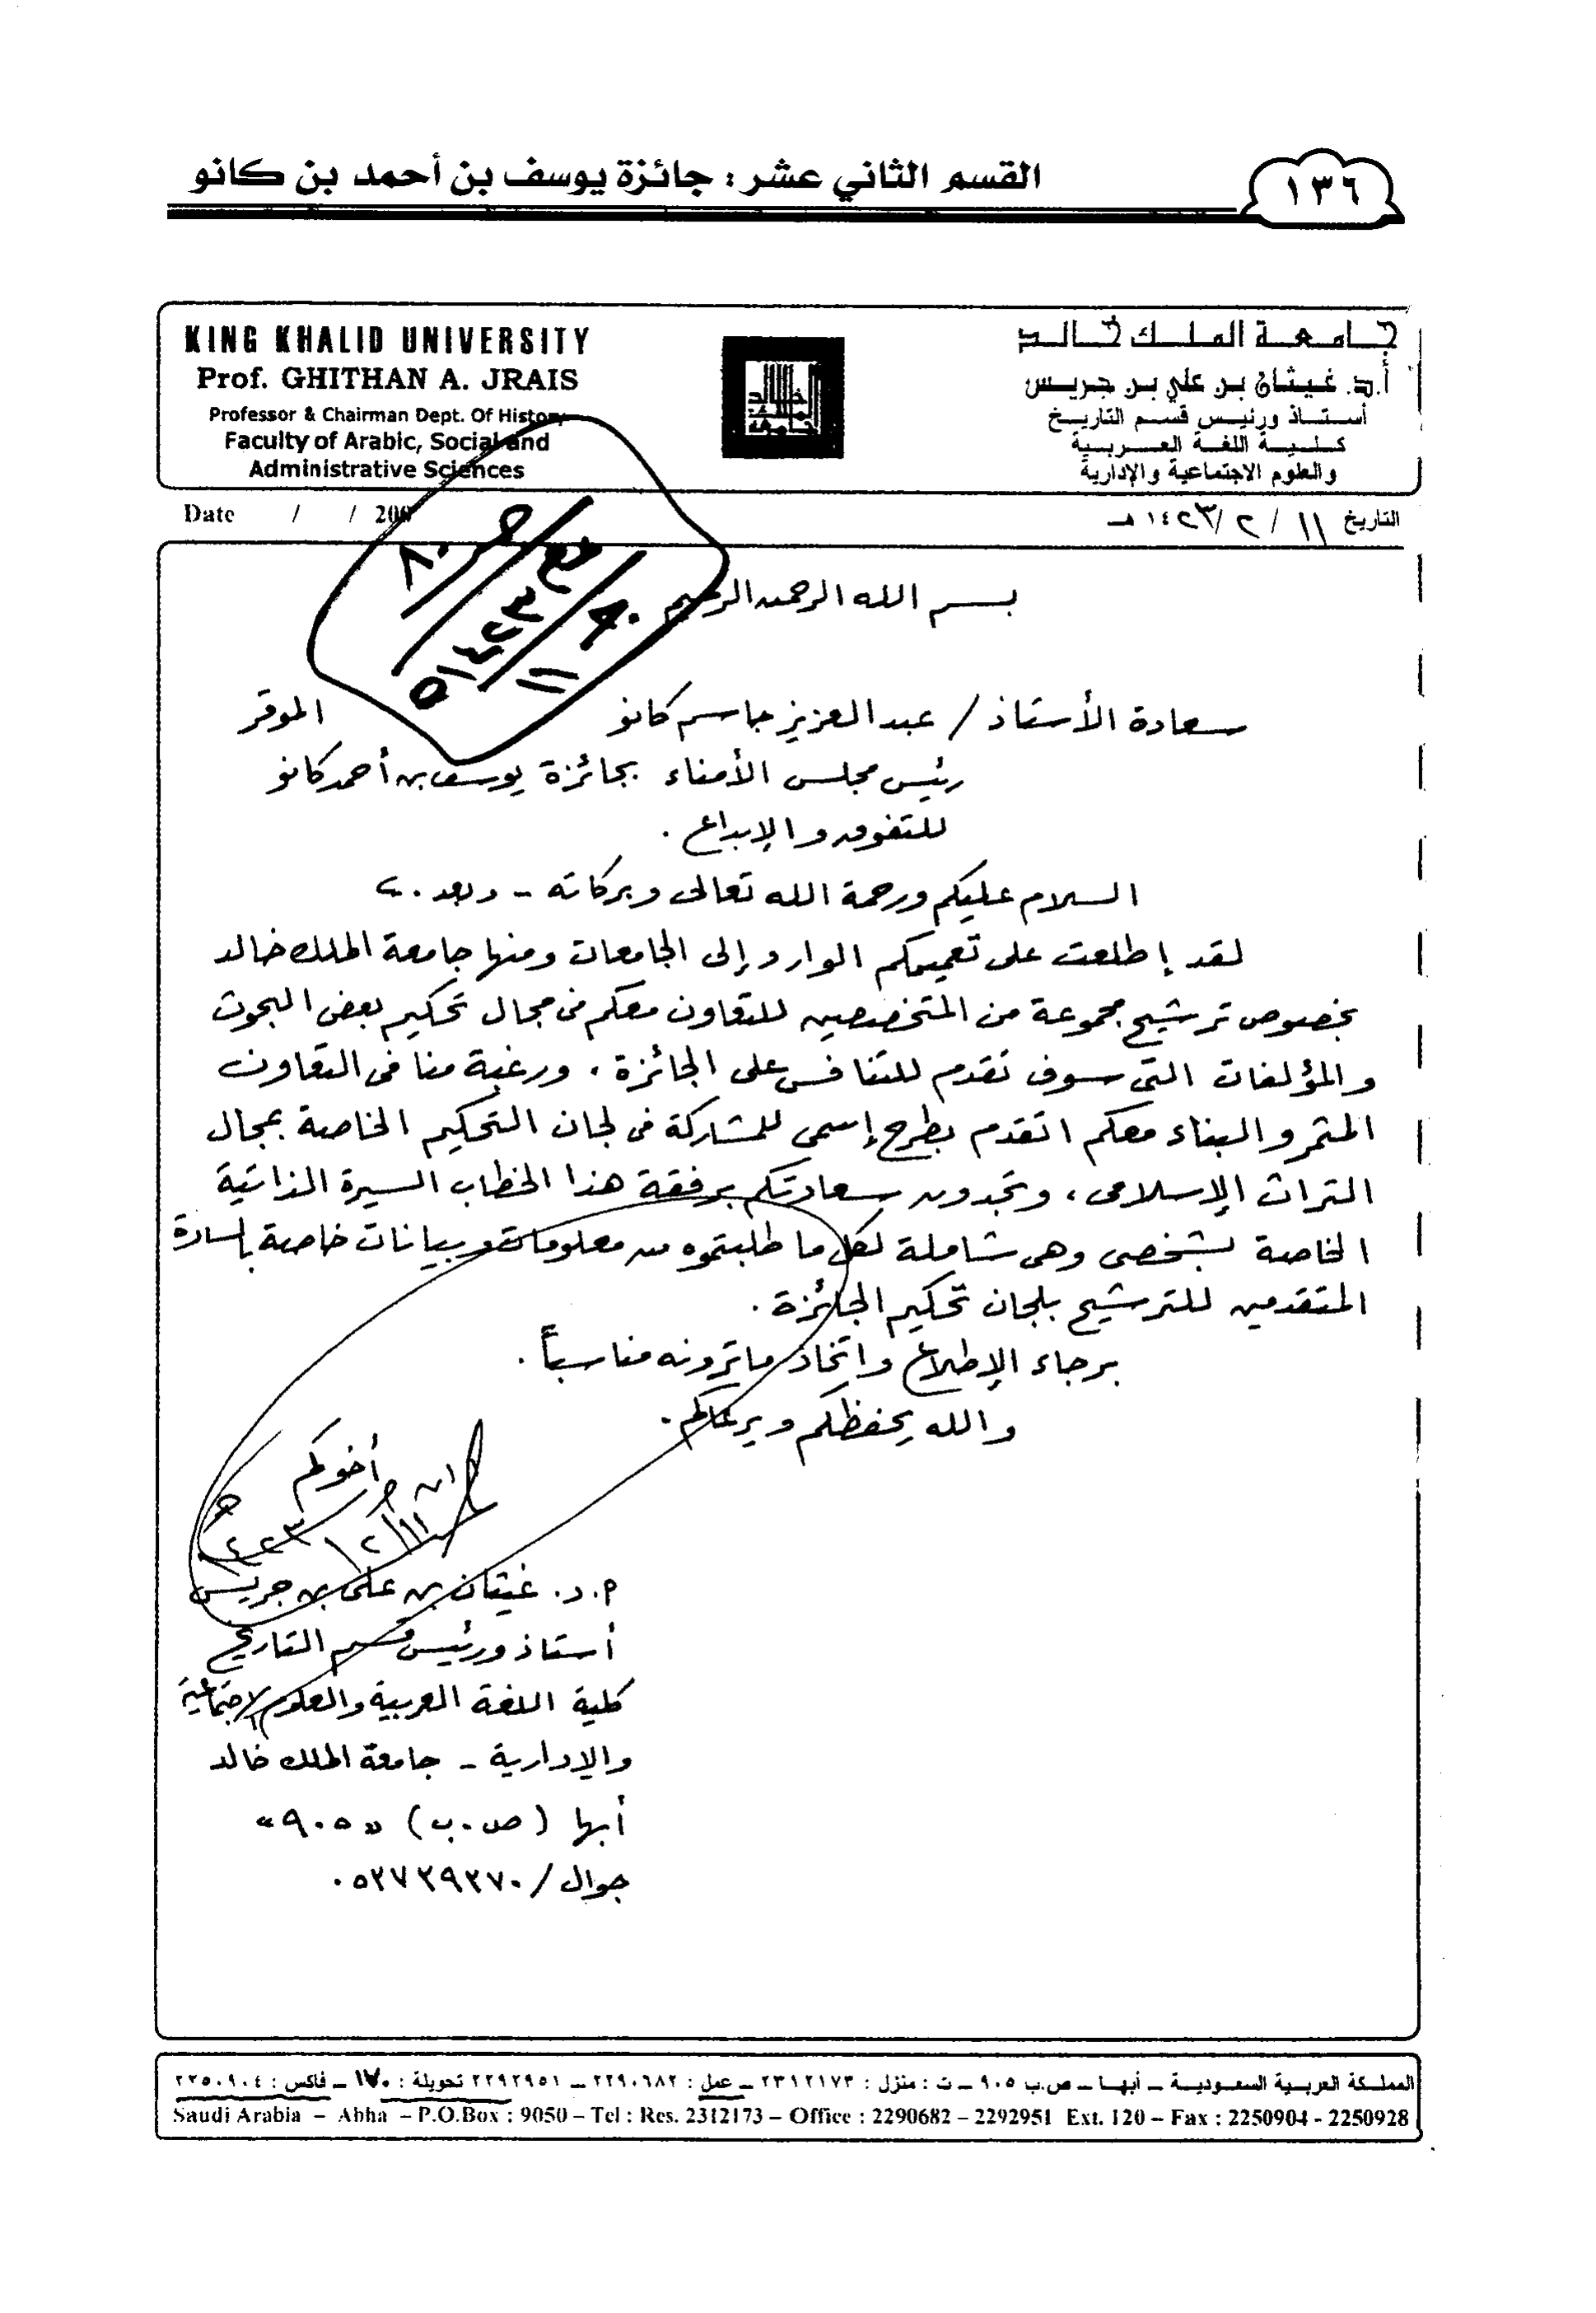 القسم الثاني عشر : جائزة يوسف بن أحمد بن كانو
١٣٦
KING KHALID UNIVERSITY
Prof. GHITHAN A. JRAIS
Professor & Chairman Dept. Of History
Faculty of Arabic, Social and
Administrative Sciences
جامعة الملك خالد
أ.د. غيثان بن علي بن جريس
أستاذ ورئيس قسم التاريخ
كلية اللغة العربية
والعلوم الاجتماعية والإدارية
Date / / 200
التاريخ ١١ / ٢ / ١٤٢٣ هـ
بسم الله الرحمن الرحيم
سعادة الأستاذ / عبدالعزيز جاسم كانو الموقر
رئيس مجلس الأمناء بجائزة يوسف بن أحمد كانو
للتفوق والإبداع .
السلام عليكم ورحمة الله تعالى وبركاته - وبعد ..
لقد إطلعت على تعميمكم الوارد إلى الجامعات ومنها جامعة الملك خالد
بخصوص ترشيح مجموعة من المتخصصين للتعاون معكم في مجال تحكيم بعض البحوث
والمؤلفات التي سوف تقدم للتنافس على الجائزة . ورغبة منا في التعاون
المثمر والبناء معكم اتقدم بطرح إسمي للمشاركة في لجان التحكيم الخاصة بمجال
التراث الإسلامي ، وتجدون سعادتكم برفقة هذا الخطاب السيرة الذاتية
الخاصة بشخصي وهي شاملة لكل ما طلبتموه من معلومات وبيانات خاصة بالسادة
المتقدمين للترشيح بلجان تحكيم الجائزة .
برجاء الإطلاع واتخاذ ماترونه مناسباً .
والله يحفظكم ويرعاكم .
أخوكم
١١/٢/١٤٢٣هـ
أ.د. غيثان بن علي بن جريس
أستاذ ورئيس قسم التاريخ
كلية اللغة العربية والعلوم الاجتماعية
والإدارية - جامعة الملك خالد
أبها (ص.ب) «٩٠٥٠»
جوال / ٠٥٣٧٣٩٣٧٠
المملكة العربية السعودية – أبها – ص.ب ٩٠٥ – ت : منزل : ٢٣١٢١٧٣ – عمل : ٢٢٩٠٦٨٢ – ٢٢٩٢٩٥١ تحويلة : ١٧٠ – فاكس : ٢٢٥٠٩٠٤
Saudi Arabia – Abha – P.O.Box : 9050 – Tel : Res. 2312173 – Office : 2290682 – 2292951 Ext. 120 – Fax : 2250904 - 2250928